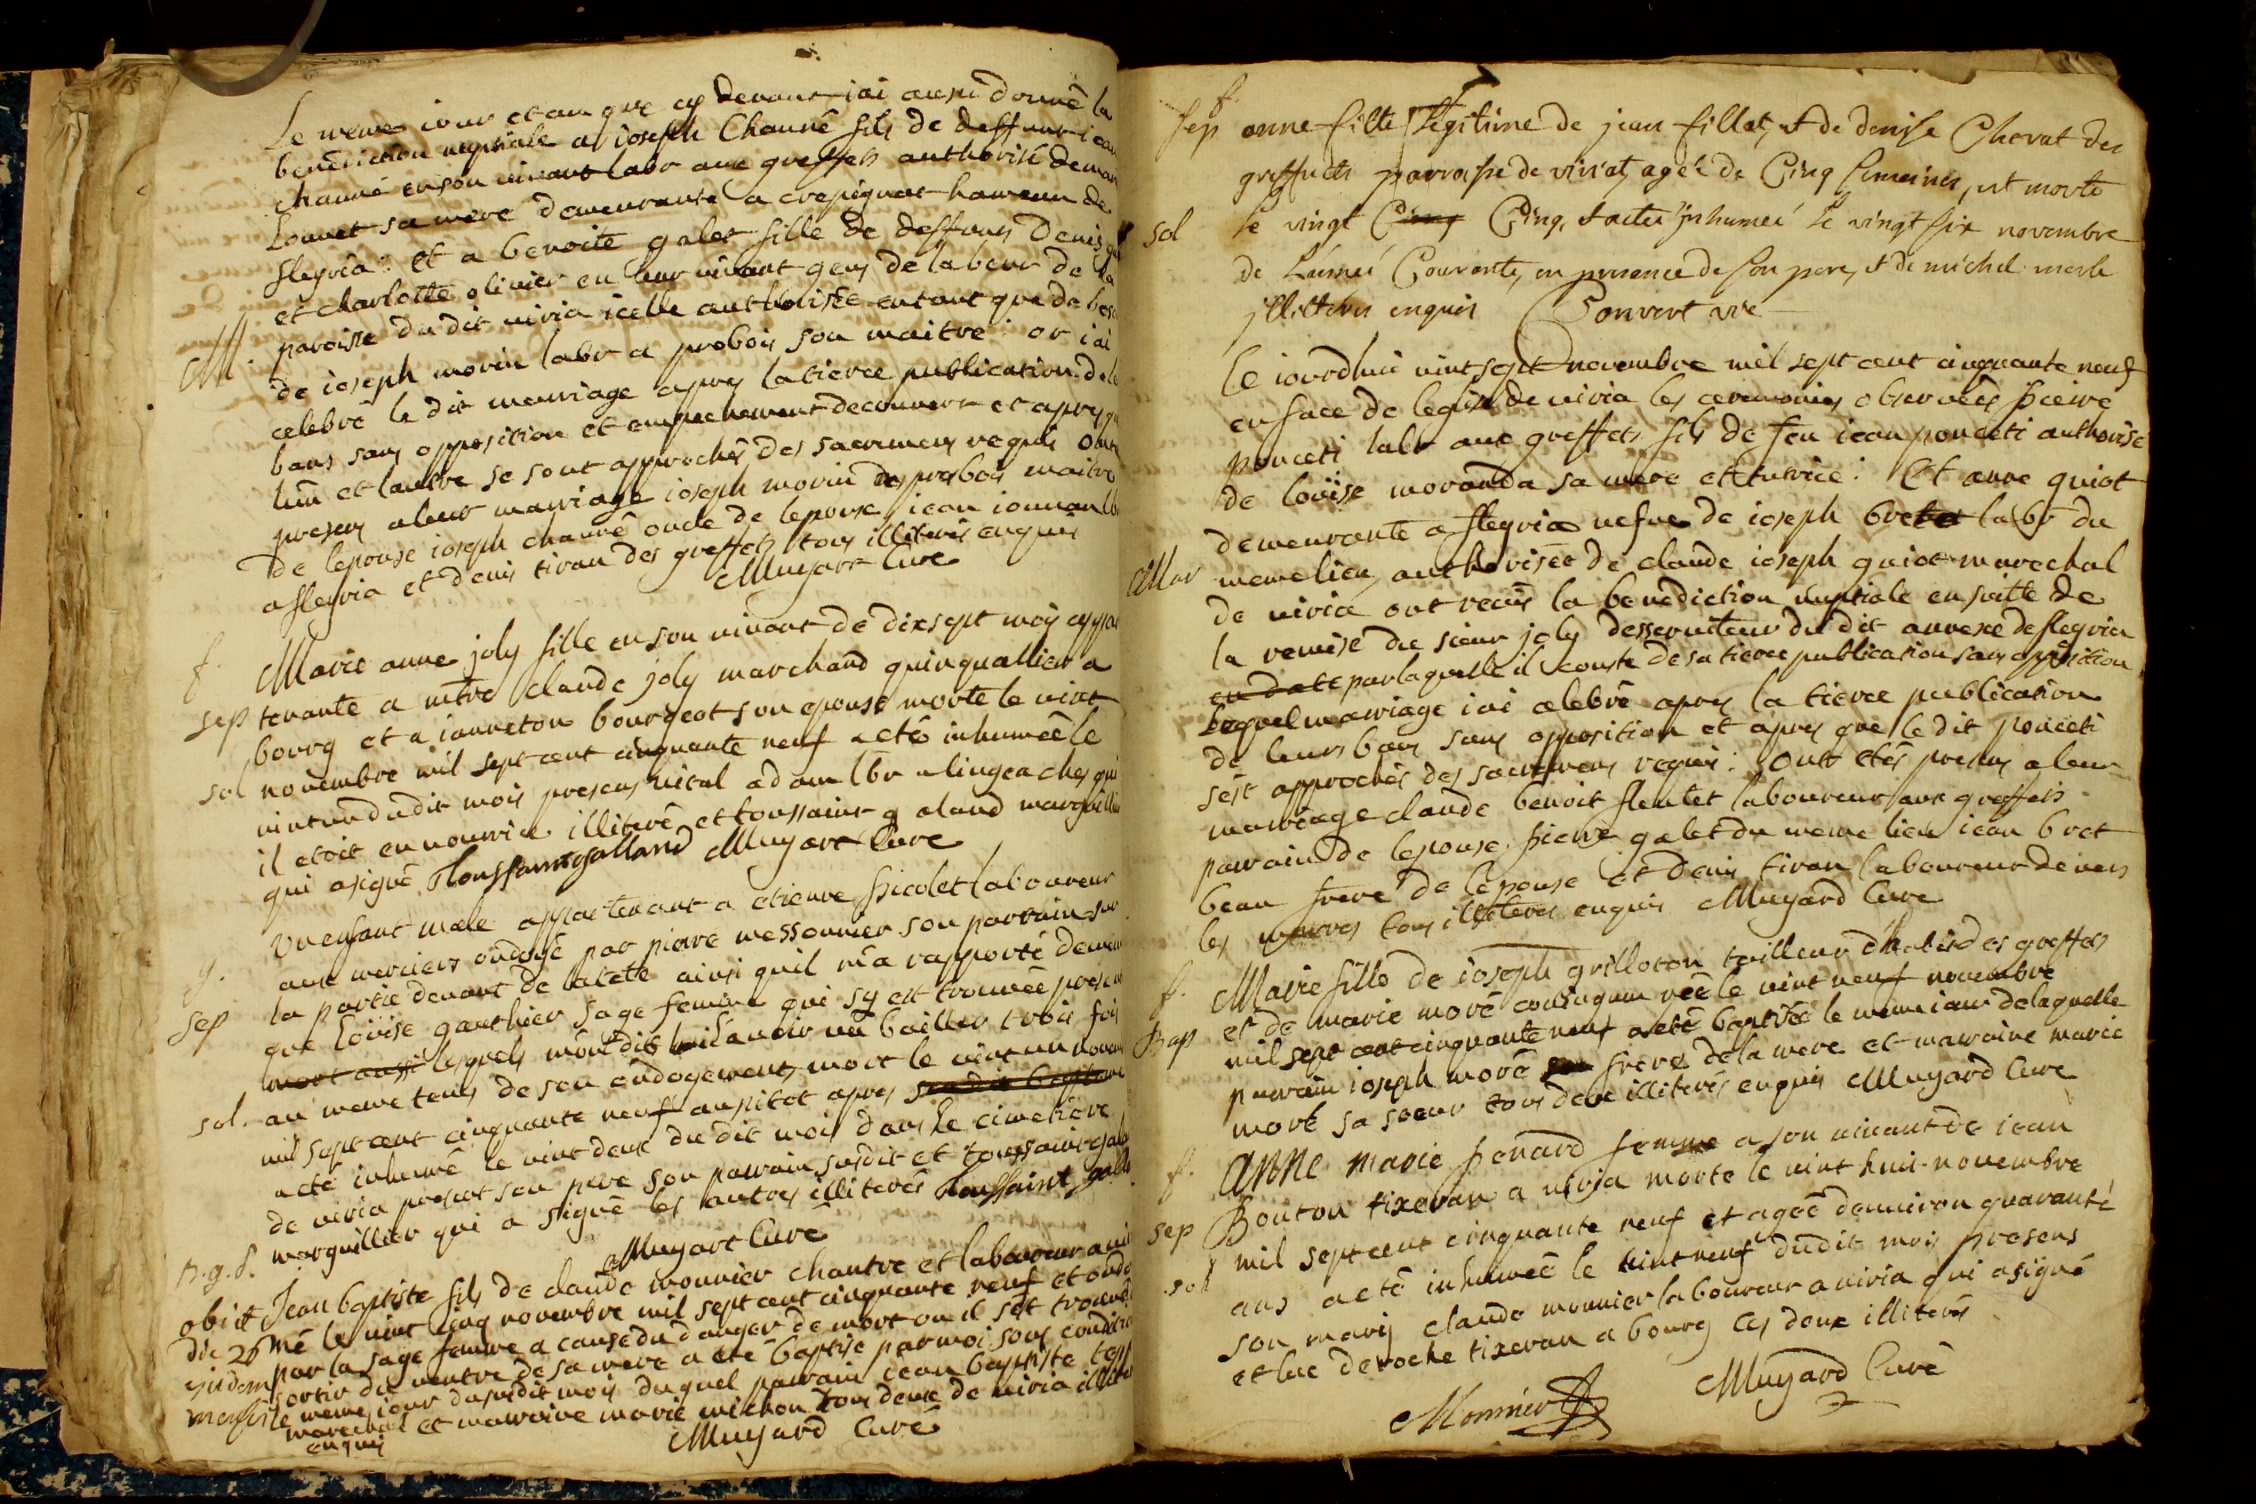 Le meme iour et an que cy devant iai aussi donné la
benediction nuptiale a ioseph Chauné fils de deffunt iean
chauné en son vivant labr aux greffets authorisé de mar
Louvet sa mere demeurante a crepignat hameau de
fleyria: et a benoite galet fille de deffuns denis ga
et charlotte olivier en leur vivant gens de labeur de la
M. paroisse du dit viria icelle authorisée en tant que de beso
de ioseph morin labr a probois son maitre: or iai
celebré le dit mariage apres la tierce publication de le
bans sans opposition et empechement decouvert et apres qu
lun et lautre se sont approchés des sacremens requis ont
presens a leur mariage ioseph morin des presbois maitre
de lepouse ioseph chauné oncle de lepoux iean
a fleyria et denis tiran des greffets tous illiterés enquis
Muyart Curé
f. Marie anne joly fille en son vivant de dixsept mois appar
sep tenante a mtre claude joly marchand quinquallier a
bourg et a ianneton bourgeot son epouse morte le vint
sol novembre mil sept cent cinquante neuf a eté inhumée le
vint un du dit mois presens vital adam lbr a lingeaches qui
il etoit en nourrice illiteré et toussaint galand marguillier
qui a signé Toussaint galland Muyart Curé
g. Un enfant male appartenant a etienne picolet laboureur
aux merciers ondoyé par pierre messonnier son parrain sur
sep la partie devant de la tete ainsi quil m'a rapporté de meme
que Loüise gauthier sage femme qui sy est trouvée presente
mort aussi lesquels mont dit lui avoir vu bailler trois fois
sol. au meme tems de son ondoyement, mort le vint un novem
mil sept cent cinquante neuf aussitot apres son dit bapteme
a eté inhumé le vint deux du dit mois dans le cimetiere
de viria presens son pere son parrain susdit et toussaint gala
marguillier qui a signé les autres illiterés Toussaint galla
Muyart Curé
B. g. f. Jean baptiste fils de claude monnier chantre et laboureur a vir
obiit né le vint cinq novembre mil sept cent cinquante neuf et ondo
die 26 par la sage femme a cause du danger de mort ou il sest trouvé
ejusdem sortir du ventre de sa mere a eté baptisé par moi sous conditio
mensis le meme iour du susdit mois duquel parrain iean baptiste
marechal et marraine marie michon tous deux de viria illite
enquis
Muyard Curé
f.
sep anne fille legitime de jean fillat, et de denise Chevat des
greffets parroisse de viriat, agée de Cinq semaines, est morte
sol le vingt Cinq Cinq, et a eté jnhumeé le vingt six novembre
de L'année Courante, en presence de son pere, et de michel merle
jllitterés enquis Convert vre
Le iourdhui vint sept novembre mil sept cent cinquante neuf
en face de leglise de viria les ceremonies observées pierre
ponceti labr aux greffets fils de feu iean ponceti authorisé
de loüise moranda sa mere et tutrice: Et anne guiot
demeurante a fleyria vefve de ioseph bret labr du
Mar meme lieu, authorisée de claude ioseph guiot marechal
de viria ont recus la benediction nuptiale en suitte de
la remise du sieur joly desserviteur du dit annexe de fleyria
en date par laquelle il conste de sa tierce publication sans opposition
lequel mariage iai celebré apres la tierce publication
de leurs bans sans opposition et apres que le dit ponceti
sest approchés des sacremens requis: Ont etés presens a leur
mariage claude benoit fleutet laboureur aux greffets
parrain de lepouse, pierre galet du meme lieu iean bret
beau frere de lepouse et denis tiran laboureur devers
les tous illiterés enquis Muyard Curé
f. Marie fille de ioseph grilloton tailleur d'habis des greffets
et de marie moré coniugum née le vint neuf novembre
Bap mil sept cent cinquante neuf a eté baptisée le meme iour de laquelle
parrain ioseph moré son frere de la mere et marraine marie
moré sa soeur tous deux illiterés enquis Muyard Curé
f. Anne marie penard femme a son vivant de iean
sep Bouton tixeran a viria morte le vint huit novembre
mil sept cent cinquante neuf et agée denviron quarante
sol ans a eté inhumée le vint neuf dudit mois presens
son mary claude monnier laboureur a viria qui a signé
et luc deroche tixeran a bourg les deux illiterés
Monnier Muyard Curé